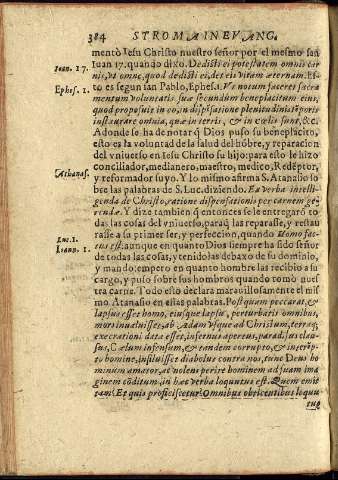 384 STROMA IN EVANG.
mento Iesu Christo nuestro señor por el mesmo san
Ioan. 17.
Iuan 17. quando dixo. Dedisti ei potestatem omnis car
nis, vt omne, quod dedisti ei, det eis vitam æternam. Es-
Ephes. 1.
to es segun san Pablo, Ephes. 1. Vt notum faceret sacra
mentum voluntatis suæ secundum beneplacitum eius,
quod proposuit in eo, in dispensatione plenitudinis tēporis
instaurare omnia, quæ in terris, & in cœlis sunt, &c.
Adonde se ha de notar q̃ Dios puso su beneplacito,
esto es la voluntad de la salud del hõbre, y reparacion
del vniuerso en Iesu Christo su hijo: para esto le hizo
conciliador, medianero, maestro, medico, Redēptor,
Athanas.
y reformador suyo. Y lo mismo afirma S. Atanasio so
bre las palabras de S. Luc. diziendo. Ea verba intelli-
genda de Christo, ratione dispensationis per carnem ge-
rendæ. Y dize tambien q̃ entonces se le entregarõ to
das las cosas del vniuerso, paraq̃ las reparasse, y restau
Luc. 1.
rasse a su primer ser, y perfeccion, quando Homo fac-
Ioann. 1.
tus est: aunque en quanto Dios siempre ha sido señor
de todas las cosas, y tenidolas debaxo de su dominio,
y mando: empero en quanto hombre las recibio a su
cargo, y puso sobre sus hombros quando tomò nues
tra carne. Todo esto declara marauillosamente el mis
mo Atanasio en essas palabras. Postquam peccarat, &
lapsus esset homo, eiusque lapsu, perturbatis omnibus,
mors inualuisset, ab Adam vsque ad Christum, terraq;
execrationi data esset, infernus apertus, paradisus clau-
sus, Cælum infensum, & tandem corrupto, & interēp-
to homine, insiluisset diabolus contra nos, tunc Deus ho
minum amator, ac nolens perire hominem ad suam ima
ginem cõditum, in hæc verba loquutus est. Quem emit
tam? Et quis proficiscetur? Omnibus obticentibus loquu
tus